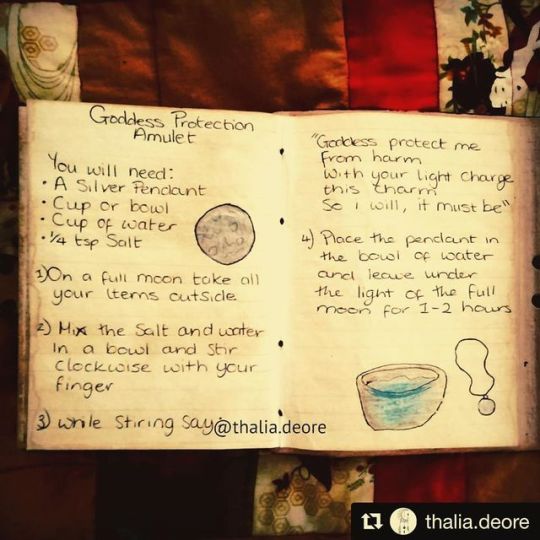 Goddess Protection
Amulet
You will need:
• A Silver Pendant
• Cup or bowl
• Cup of water
• 1/4 tsp Salt
1) On a full moon take all
your Items outside
2) Mix the Salt and water
In a bowl and Stir
clockwise with your
finger
3) While Stiring Say:
"Goddess protect me
from harm
With your light Charge
this Charm
So I will, it must be"
4) Place the pendant in
the bowl of water
and leave under
the light of the full
moon for 1-2 hours
@thalia.deore
thalia.deore